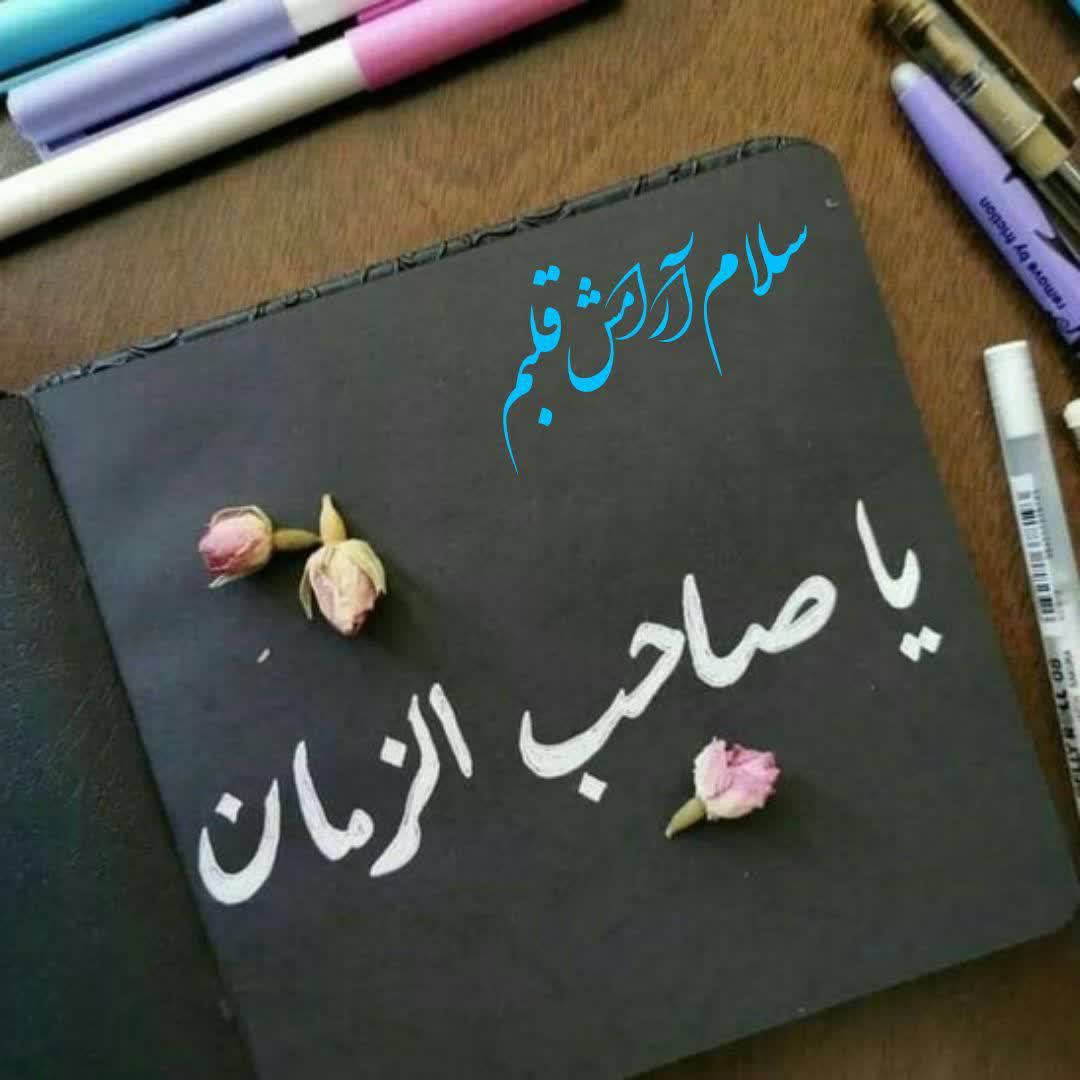 سلام آرامش قلبم
یا صاحب الزمان
remove by friction